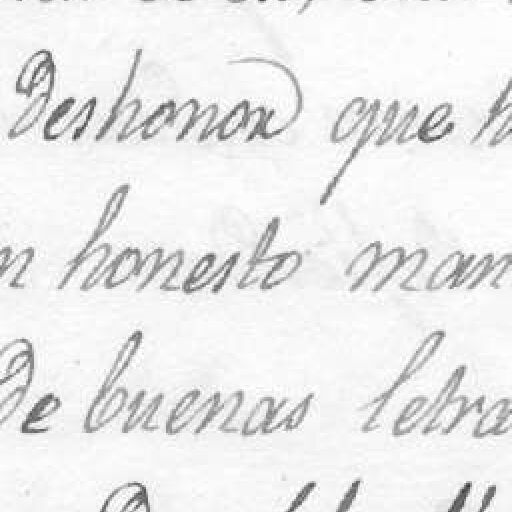 deshonor que h
n honesto man
de buenas letra